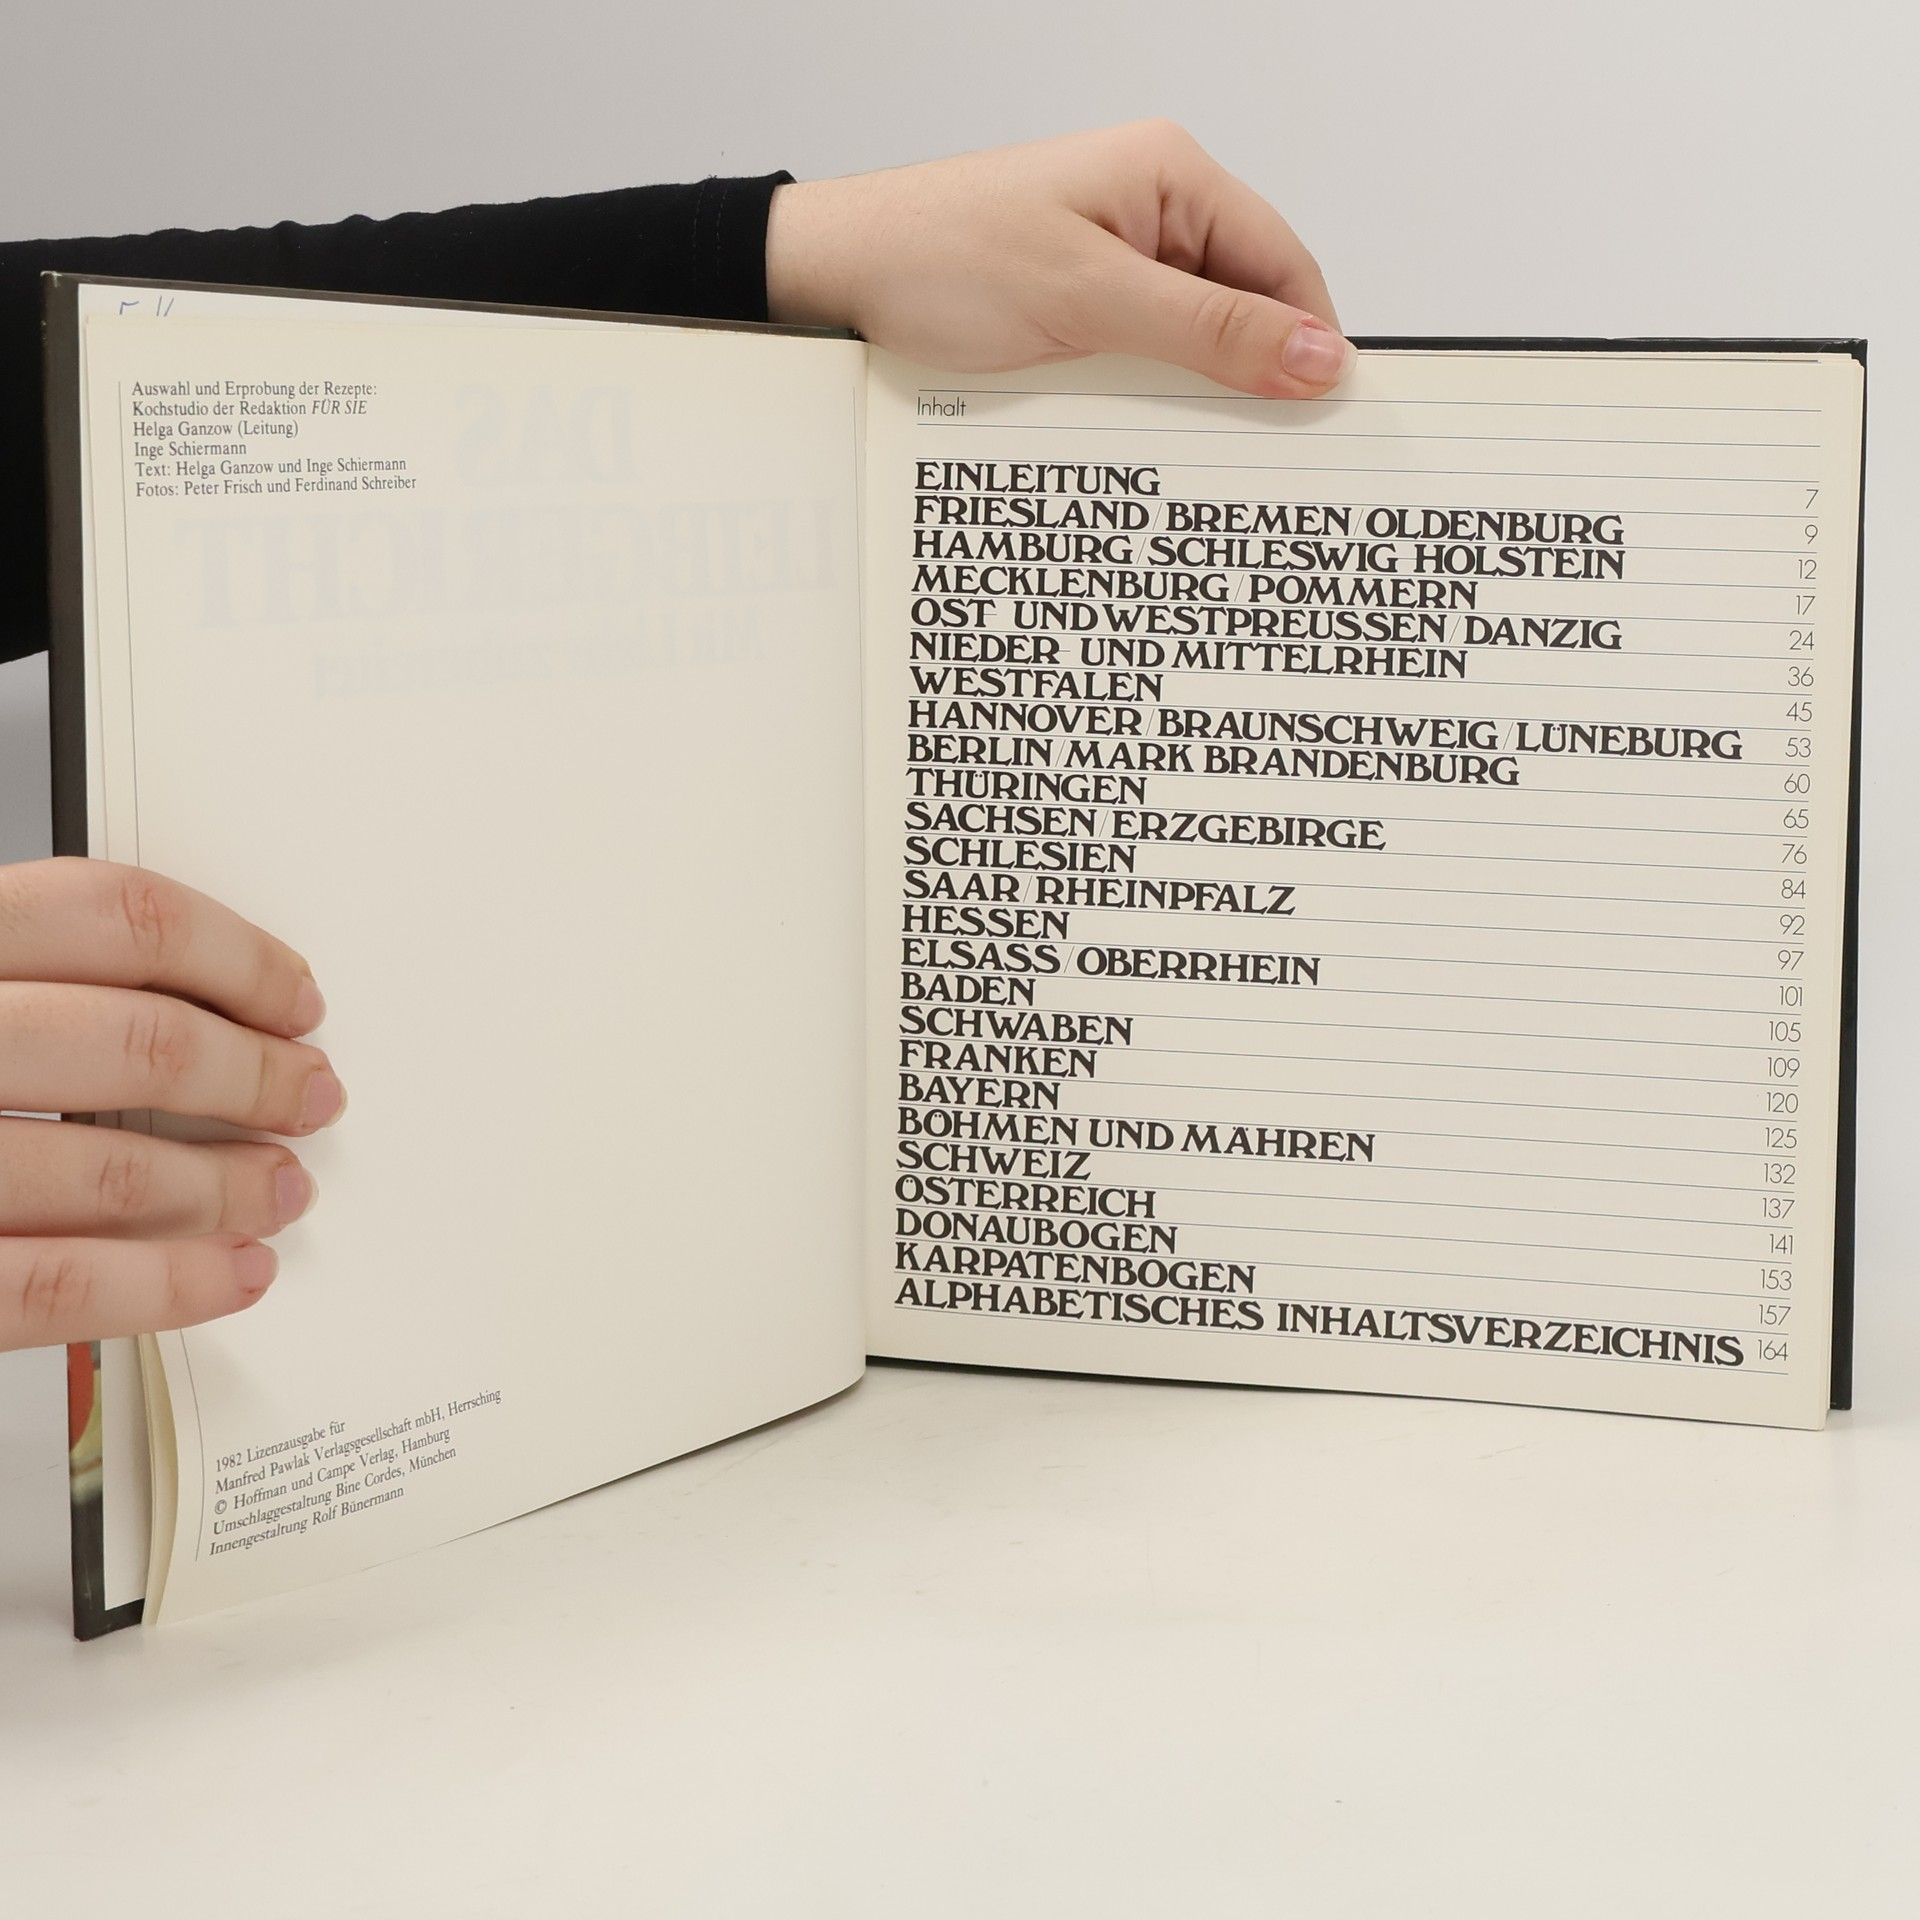 Auswahl und Erprobung der Rezepte:
Kochstudio der Redaktion FÜR SIE
Helga Ganzow (Leitung)
Inge Schiermann
Text: Helga Ganzow und Inge Schiermann
Fotos: Peter Frisch und Ferdinand Schreiber
1982 Lizenzausgabe für
Manfred Pawlak Verlagsgesellschaft mbH, Herrsching
© Hoffman und Campe Verlag, Hamburg
Umschlaggestaltung Bine Cordes, München
Innengestaltung Rolf Bünermann
Inhalt
EINLEITUNG 7
FRIESLAND/BREMEN/OLDENBURG 9
HAMBURG/SCHLESWIG HOLSTEIN 12
MECKLENBURG/POMMERN 17
OST- UND WESTPREUSSEN/DANZIG 24
NIEDER- UND MITTELRHEIN 36
WESTFALEN 45
HANNOVER/BRAUNSCHWEIG/LÜNEBURG 53
BERLIN/MARK BRANDENBURG 60
THÜRINGEN 65
SACHSEN/ERZGEBIRGE 76
SCHLESIEN 84
SAAR/RHEINPFALZ 92
HESSEN 97
ELSASS/OBERRHEIN 101
BADEN 105
SCHWABEN 109
FRANKEN 120
BAYERN 125
BÖHMEN UND MÄHREN 132
SCHWEIZ 137
ÖSTERREICH 141
DONAUBOGEN 153
KARPATENBOGEN 157
ALPHABETISCHES INHALTSVERZEICHNIS 164